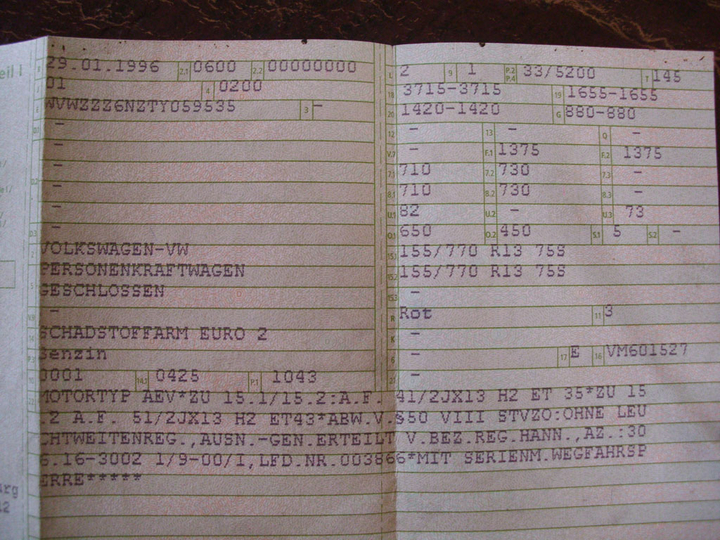 29.01.1996 2.1 0600 2.2 00000000 L 2 9 1 P.2 P.4 33/5200 T 145
01 4 0200 18 3715-3715 19 1655-1655
WVWZZZ6NZTY059535 3 - 20 1420-1420 G 880-880
- 12 - 13 - Q -
- V.7 - F.1 1375 F.2 1375
- 7.1 710 7.2 730 7.3 -
- 8.1 710 8.2 730 8.3 -
- U.1 82 U.2 - U.3 73
- O.1 650 O.2 450 S.1 5 S.2 -
VOLKSWAGEN-VW 15.1 155/770 R13 75S
PERSONENKRAFTWAGEN 15.2 155/770 R13 75S
GESCHLOSSEN 15.3 -
- R Rot 11 3
SCHADSTOFFARM EURO 2 K -
Benzin 6 - 17 E 16 VM601527
0001 14.1 0425 P.1 1043 21 -
MOTORTYP AEV*ZU 15.1/15.2:A.F. 41/2JX13 H2 ET 35*ZU 15
.2 A.F. 51/2JX13 H2 ET43*ABW.V.§50 VIII STVZO:OHNE LEU
CHTWEITENREG.,AUSN.-GEN.ERTEILT V.BEZ.REG.HANN.,AZ.:30
6.16-3002 1/9-00/I,LFD.NR.003866*MIT SERIENM.WEGFAHRSP
ERRE*****